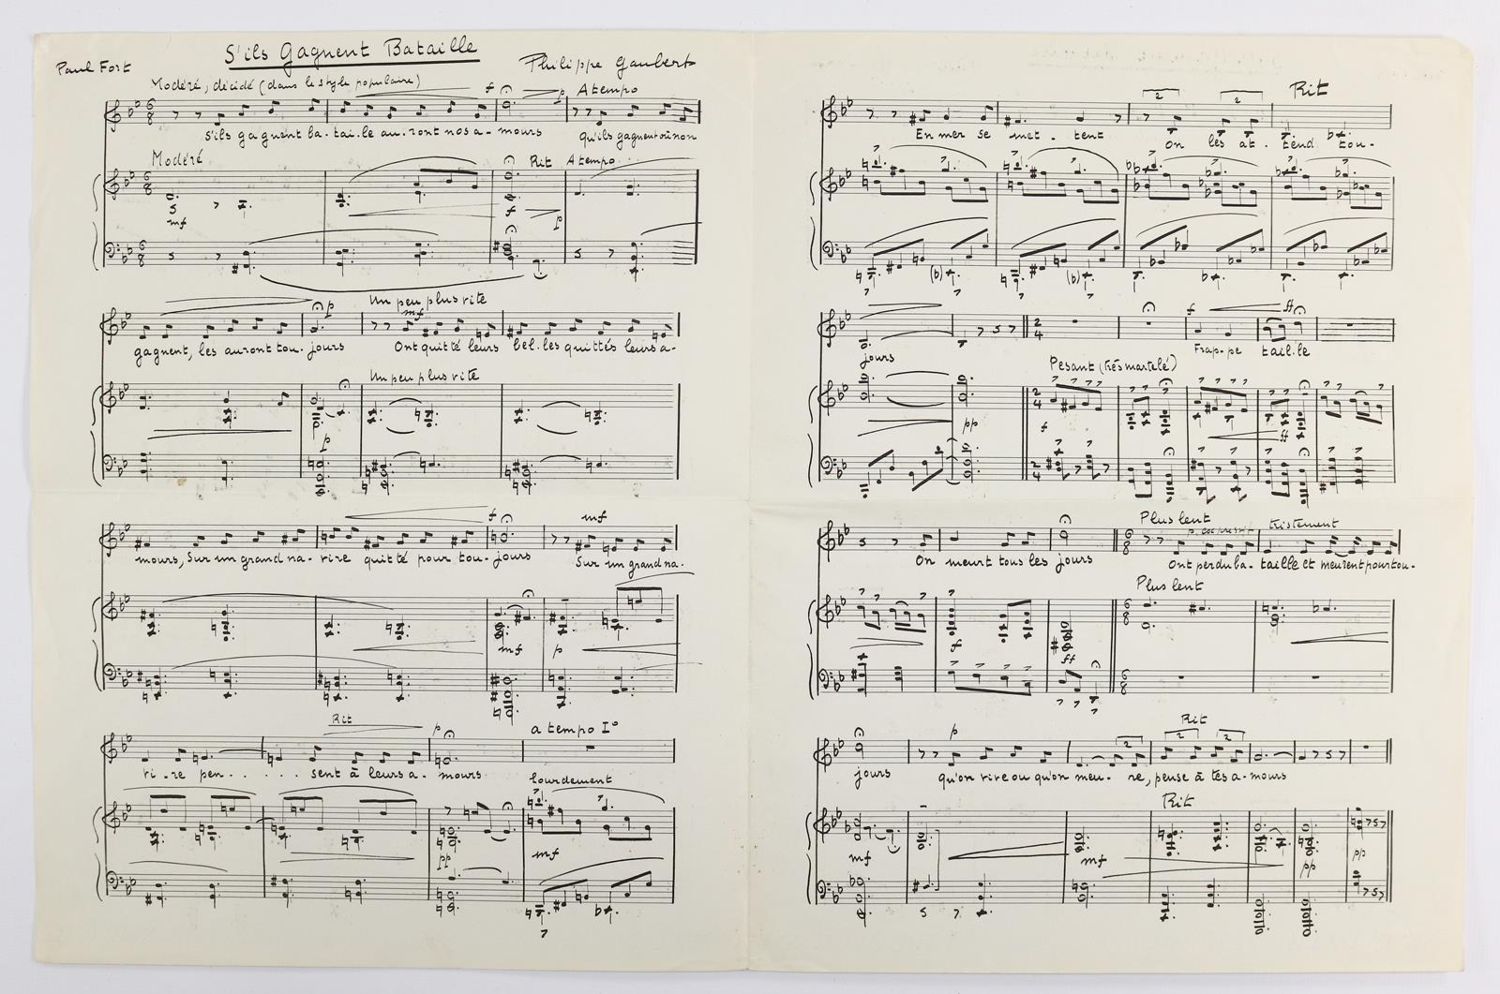 S'ils Gagnent Bataille
Paul Fort
Philippe Gaubert
Modéré, décidé (dans le style populaire)
f
p
A tempo
S'ils gagnent ba-tai-le au-ront nos a-mours qu'ils gagnent où non
Modéré
Rit
A tempo
mf
f
p
p
Un peu plus vite
mf
gagnent, les auront tou-jours Ont quitté leurs bel-les quittés leurs a-
Un peu plus vite
p
f
mf
mours, Sur un grand na-vire quitté pour tou-jours Sur un grand na-
mf
p
Rit
p
a tempo I°
vi-re pen.....sent à leurs a-mours
lourdement
pp
mf
Rit
2
2
En mer se met-tent on les at-tend tou-
f
ff
jours
Frap-pe tail-le
Pesant (très martelé)
pp
f
ff
Plus lent
p. expressif
tristement
On meurt tous les jours Ont perdu ba-taille et meurent pour tou-
Plus lent
f
ff
p
Rit
2
2
2
jours qu'on vive ou qu'on meu-re, pense à tes a-mours
Rit
mf
mf
pp
pp